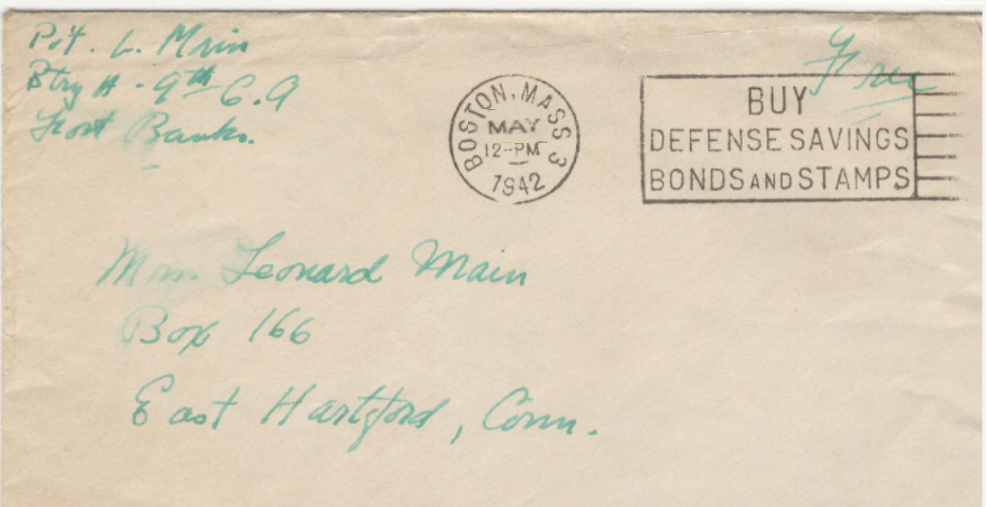 Pvt. L. Main
Btry H - 9th C.A
Fort Banks.
Free
BOSTON, MASS 3
MAY
12-PM
1942
BUY
DEFENSE SAVINGS
BONDS AND STAMPS
Mrs. Leonard Main
Box 166
East Hartford, Conn.